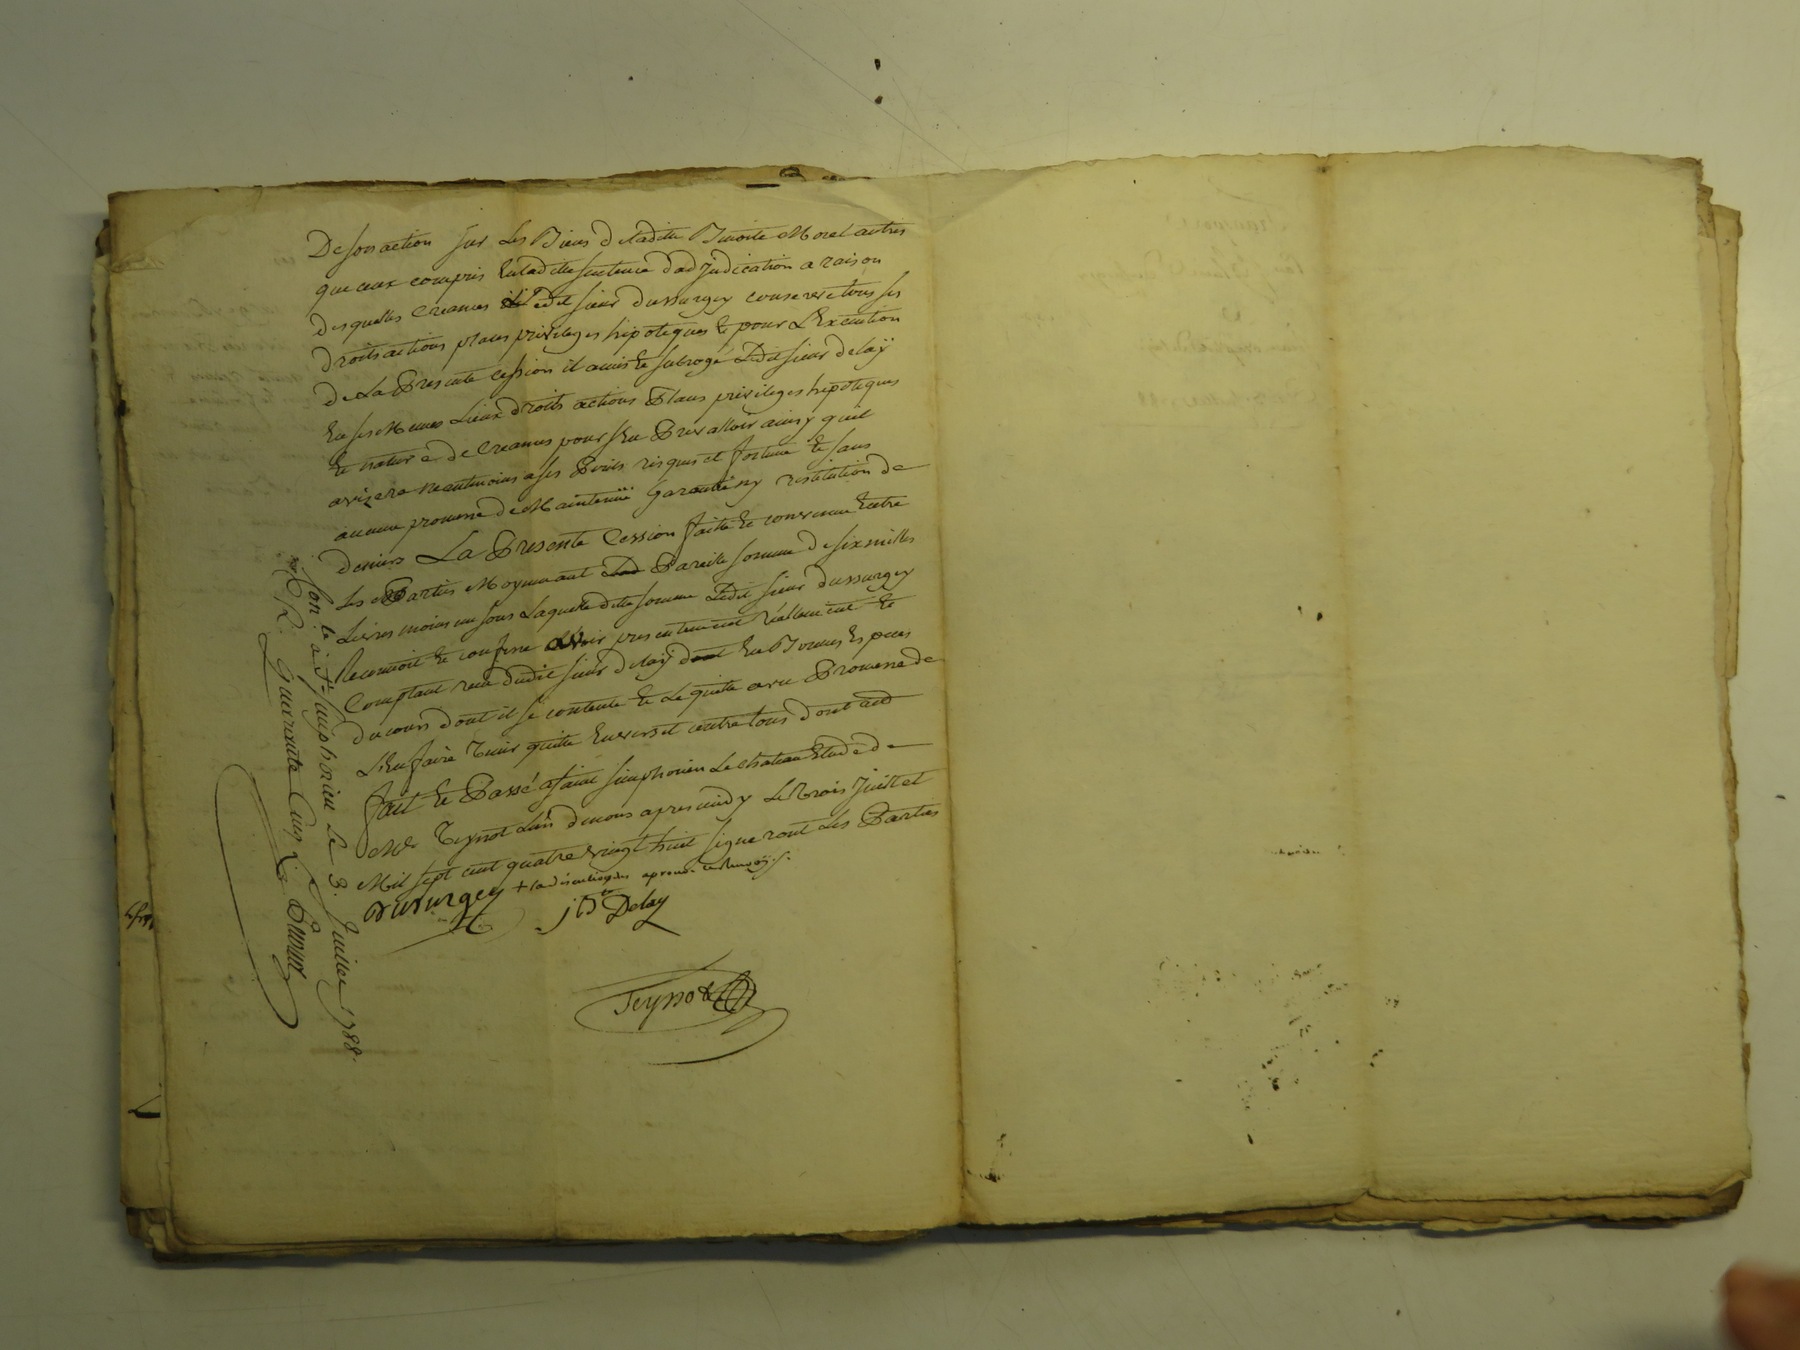 De son action sur Les Biens de ladite Benoite Morel autres
que ceux compris En ladite sentence dadjudication a raison
desquelles Creances Ledit sieur dussurgey conserve tous ses
droits actions places privileges hipoteques Et pour LExecution
de La Presente cession il a mis Et subrogé Ledit sieur delaÿ
En ses Memes Lieux droits actions Places privileges hipoteques
Et nature de Creances pour sEn Prevalloir ainsy quil
avizera neantmoins a ses Perils risques et fortune Et sans
aucune promesse de Maintenüe Garantie ny restitution de
deniers La Presente Cession faitte Et convenue Entre
Les Parties Moyennant Pareille somme de six milles
Livres moins un sous Laquelle ditte somme Ledit sieur dussurgey
Reconnoit Et confesse avoir presentement réellement Et
Comptant reçu dudit sieur delaÿ En Bonnes Especes
du cours dont il se contente Et Le quitte avec Promesse de
LEn faire Tenir quitte Envers et contre tous dont acte
fait Et Passé a saint simphorien Le chateau Etude de
Me. Teynot Lun de nous apres midy Le Trois Juillet
Mil sept cent quatre vingt huit signeront Les Parties
Dussurgey
jb Delay
Teynot
Con. lé à St. simphorien Le 3. Juillet 1788.
R. Quarante Cinq L.